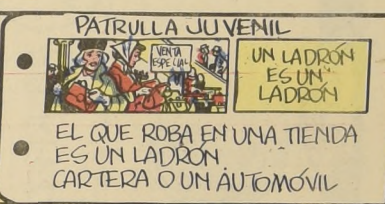 PATRULLA JUVENIL
VENTA
ESPECIAL
UN LADRÓN
ES UN
LADRÓN
EL QUE ROBA EN UNA TIENDA
ES UN LADRÓN
CARTERA O UN AUTOMÓVIL